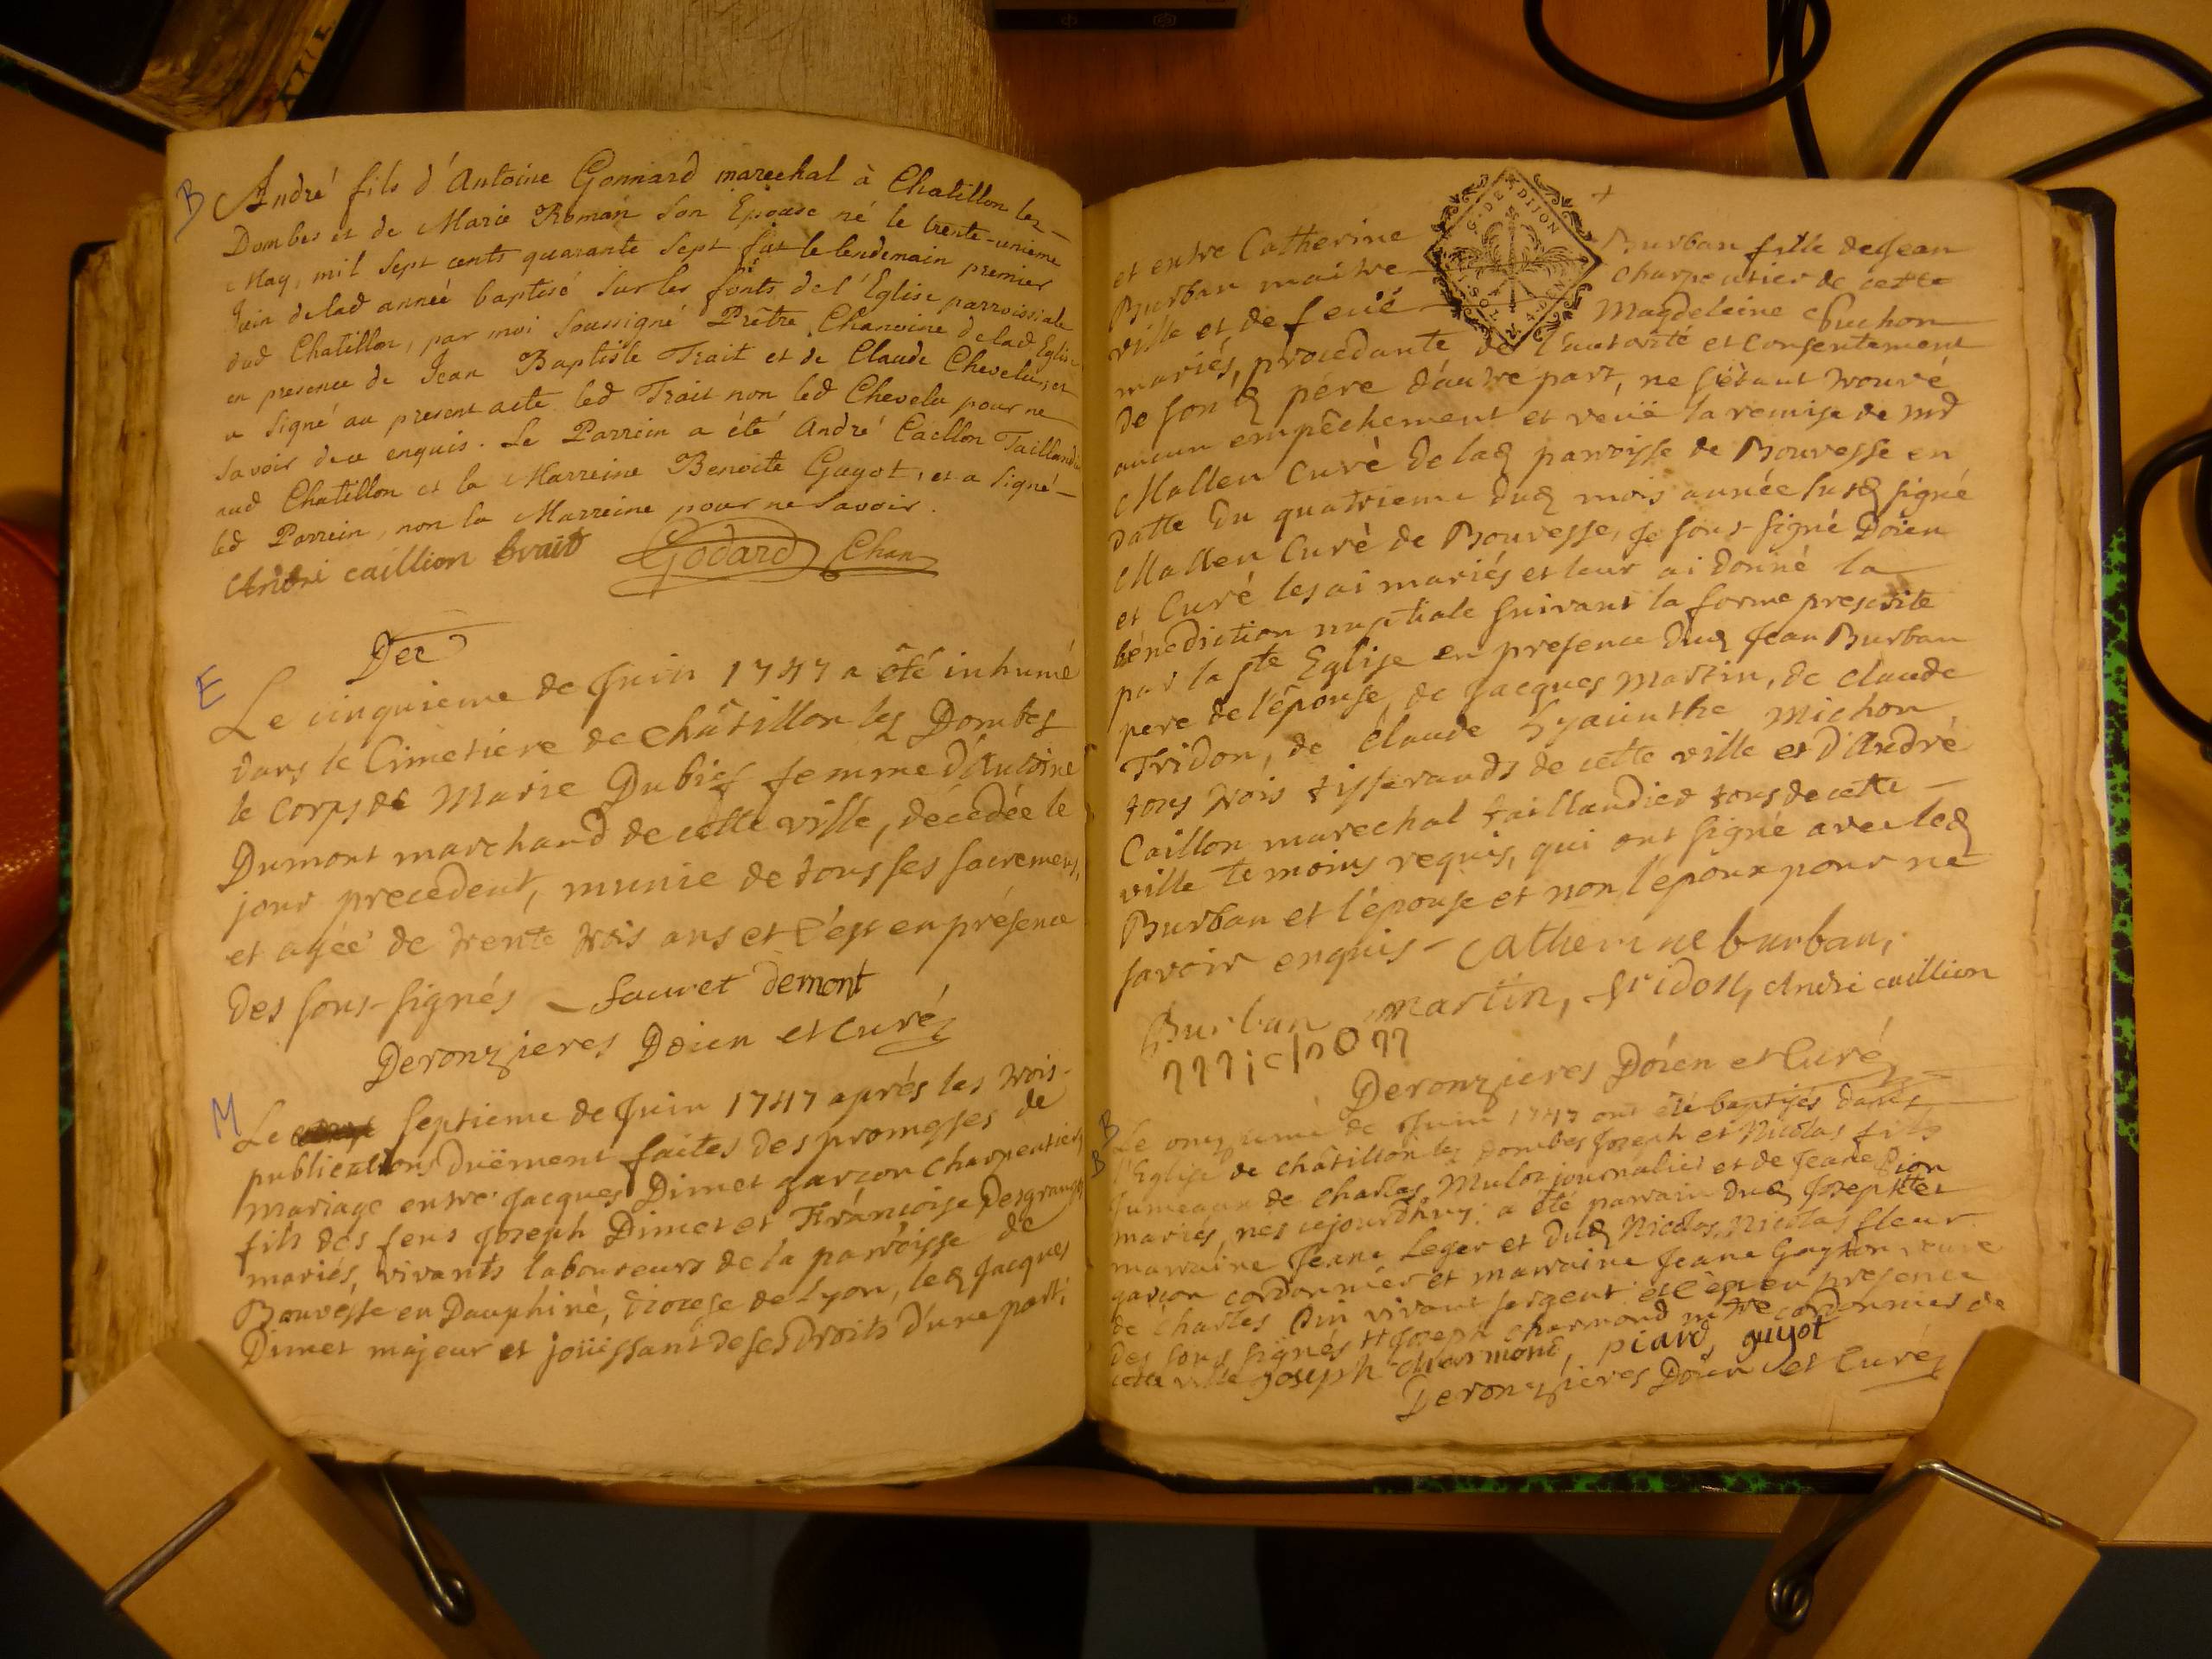 B
André fils d'Antoine Gonnard marechal à Chatillon lez-
Dombes et de Marie Roman son Epouse né le trente-unieme
May, mil sept cents quarante sept fut le lendemain premier
Juin delad année baptisé sur les fonts de l'Eglise parroissiale
dud Chatillon, par moi soussigné Prêtre Chanoine delad Eglise
en presence de Jean Baptiste Trait et de Claude Chevelu, et
a signé au present acte led Trait non led Chevelu pour ne
savoir de ce enquis. Le Parrein a été André Caillon Taillandier
aud Chatillon et la Marreine Benoite Guyot, et a signé
led Parrein, non la Marreine pour ne savoir.
André caillion trait Godard Chan
Dec
E
Le cinquieme de Juin 1747 a été inhumé
dans le Cimetiere de châtillon lez Dombes
le corps de Marie Dubief femme d'Antoine
Dumont marchand de cette ville, décédée le
jour precedent, munie de tous ses sacremens,
et agée de trente trois ans et c'est en présence
des sous-signés - sauvet demont
Deronzieres Doien et curé
M
Le septieme de Juin 1747 aprés les trois
publications duëment faites des promesses de
mariage entre Jacques Dimet garçon charpentier
fils des feus Joseph Dimet et Françoise Desgranges
mariés, vivants laboureurs de la parroisse de
Bouvesse en Dauphiné, diocese de Lyon, led Jacques
Dimet majeur et joüissant de ses droits d'une part;
G. DE DIJON
et entre Catherine Burban fille de Jean
Burban maitre charpentier de cette
ville et de feüe Magdeleine Chuchon
mariés, procedante de l'autorité et consentement
de sond pére d'autre part, ne s'étant trouvé
aucun empêchement et veüe la remise de mr
Mallen Curé delad parroisse de Bouvesse en
datte du quatrieme dud mois année susd signé
Mallen Curé de Bouvesse, Je sous-signé Doien
et Curé les ai mariés et leur ai donné la
bénediction nuptiale suivant la forme prescrite
par la ste Eglise en presence dud Jean Burban
pere de l'épouse, de Jacques Martin, de claude
Tridon, de claude hyacinthe Michon
tous trois tisserands de cette ville et d'André
Caillon marechal taillandier tous de cette
ville temoins requis, qui ont signé avec led
Burban et l'épouse et non l'epoux pour ne
savoir enquis - Catherine burban,
Burban martin, tridon, André caillion
michon
Deronzieres Doien et Curé
B
B
Le onzieme de Juin 1747 ont été baptisés dans
l'Eglise de châtillon lez Dombes Joseph et Nicolas fils
jumeaux de charles Mulot journalier et de Jeane Pion
mariés, nes cejourdhuy: a été parrain dud Joseph
marraine Jeane Leger et dud Nicolas, Nicolas fleur
garçon cordonnier et marraine Jeane Guyton veuve
de charles Pin vivant sergent et c'est en presence
des sous signés Joseph charmond mtre cordonnier de
cette ville Joseph charmont, piard, guyot
Deronzieres Doien et Curé